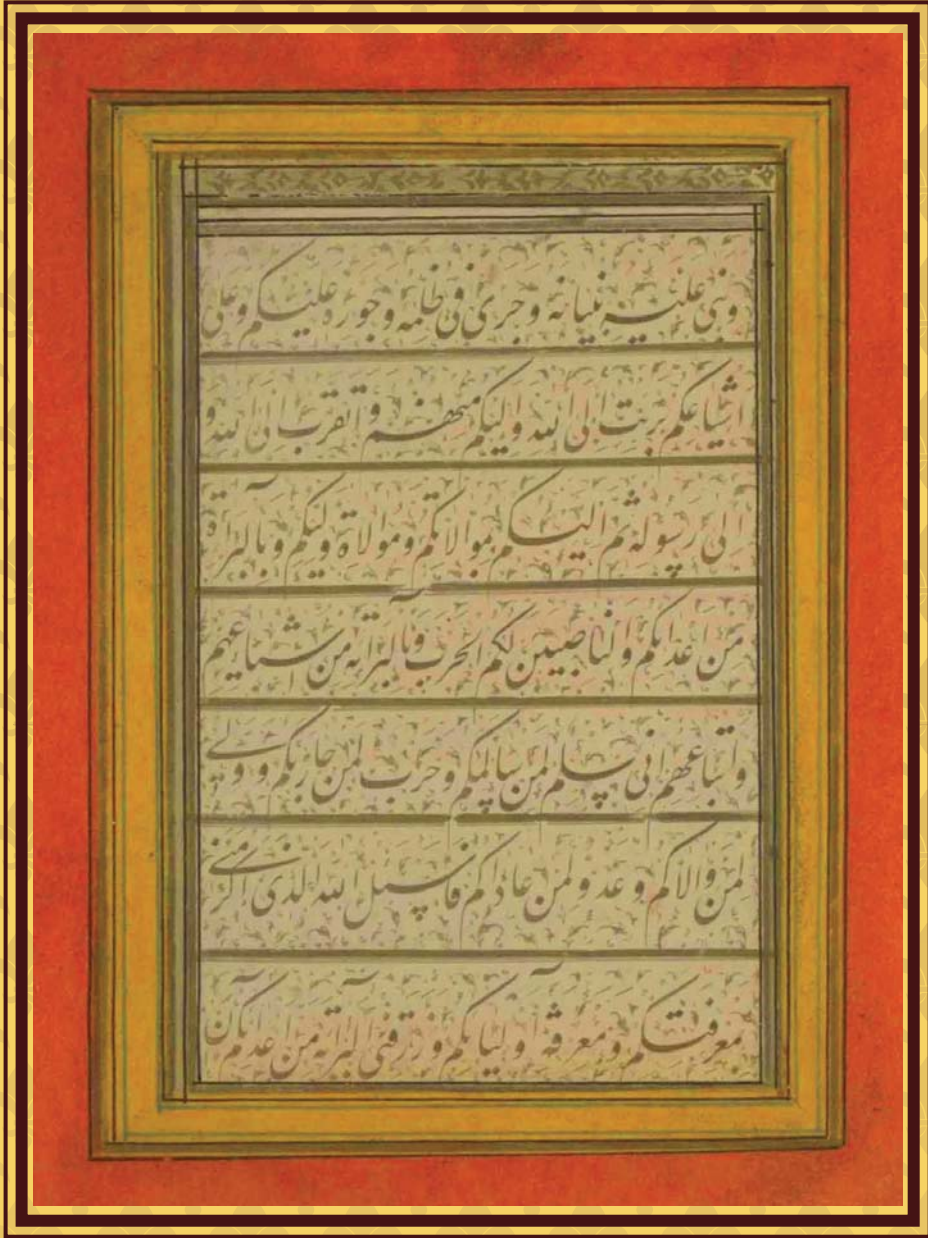 وبنی علیه بنیانه وجری فی ظلمه وجوره علیکم وعلی
اشیاعکم برئت الی الله والیکم منهم واتقرب الی الله و
الی رسوله ثم الیکم بموالاتکم ومولاة ولیکم وبالبرآءة
من اعدائکم والناصبین لکم الحرب وبالبرآءة من اشیاعهم
واتباعهم انی سلم لمن سالمکم وحرب لمن حاربکم وولی
لمن والاکم وعدو لمن عاداکم فاسئل الله الذی اکرمنی
بمعرفتکم ومعرفة اولیائکم ورزقنی البرآءة من اعدائکم ان